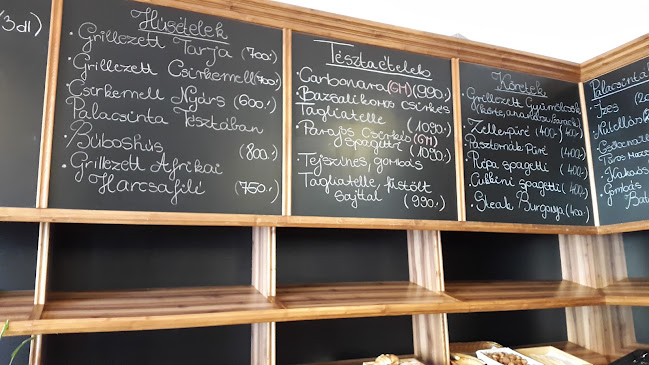 (3dl)
Húsételek
• Grillezett Tarja (700.-)
• Grillezett Csirkemell (700.-)
• Csirkemell Nyárs (600.-)
Palacsinta Tésztában
• Búboshús (800.-)
• Grillezett Afrikai
Harcsafilé (750.-)
Tésztaételek
• Carbonara (GM) (990.-)
• Bazsalikomos csirkés
Tagliatelle (1090.-)
• Parajos Csirkés (GM)
Spagetti (1090.-)
• Tejszínes, gombás
Tagliatelle, füstölt
sajttal (990.-)
Köretek
• Grillezett Gyümölcsök
(körte, ananász, barack)
• Zellerpüré (400.-)
• Pasztornák Püré (400.-)
• Répa spagetti (400.-)
• Cukkini spagetti (400.-)
• Steak Burgonya (400.-)
Palacsinta
• Ízes
• Nutellás
• Kakaós
• Gombás